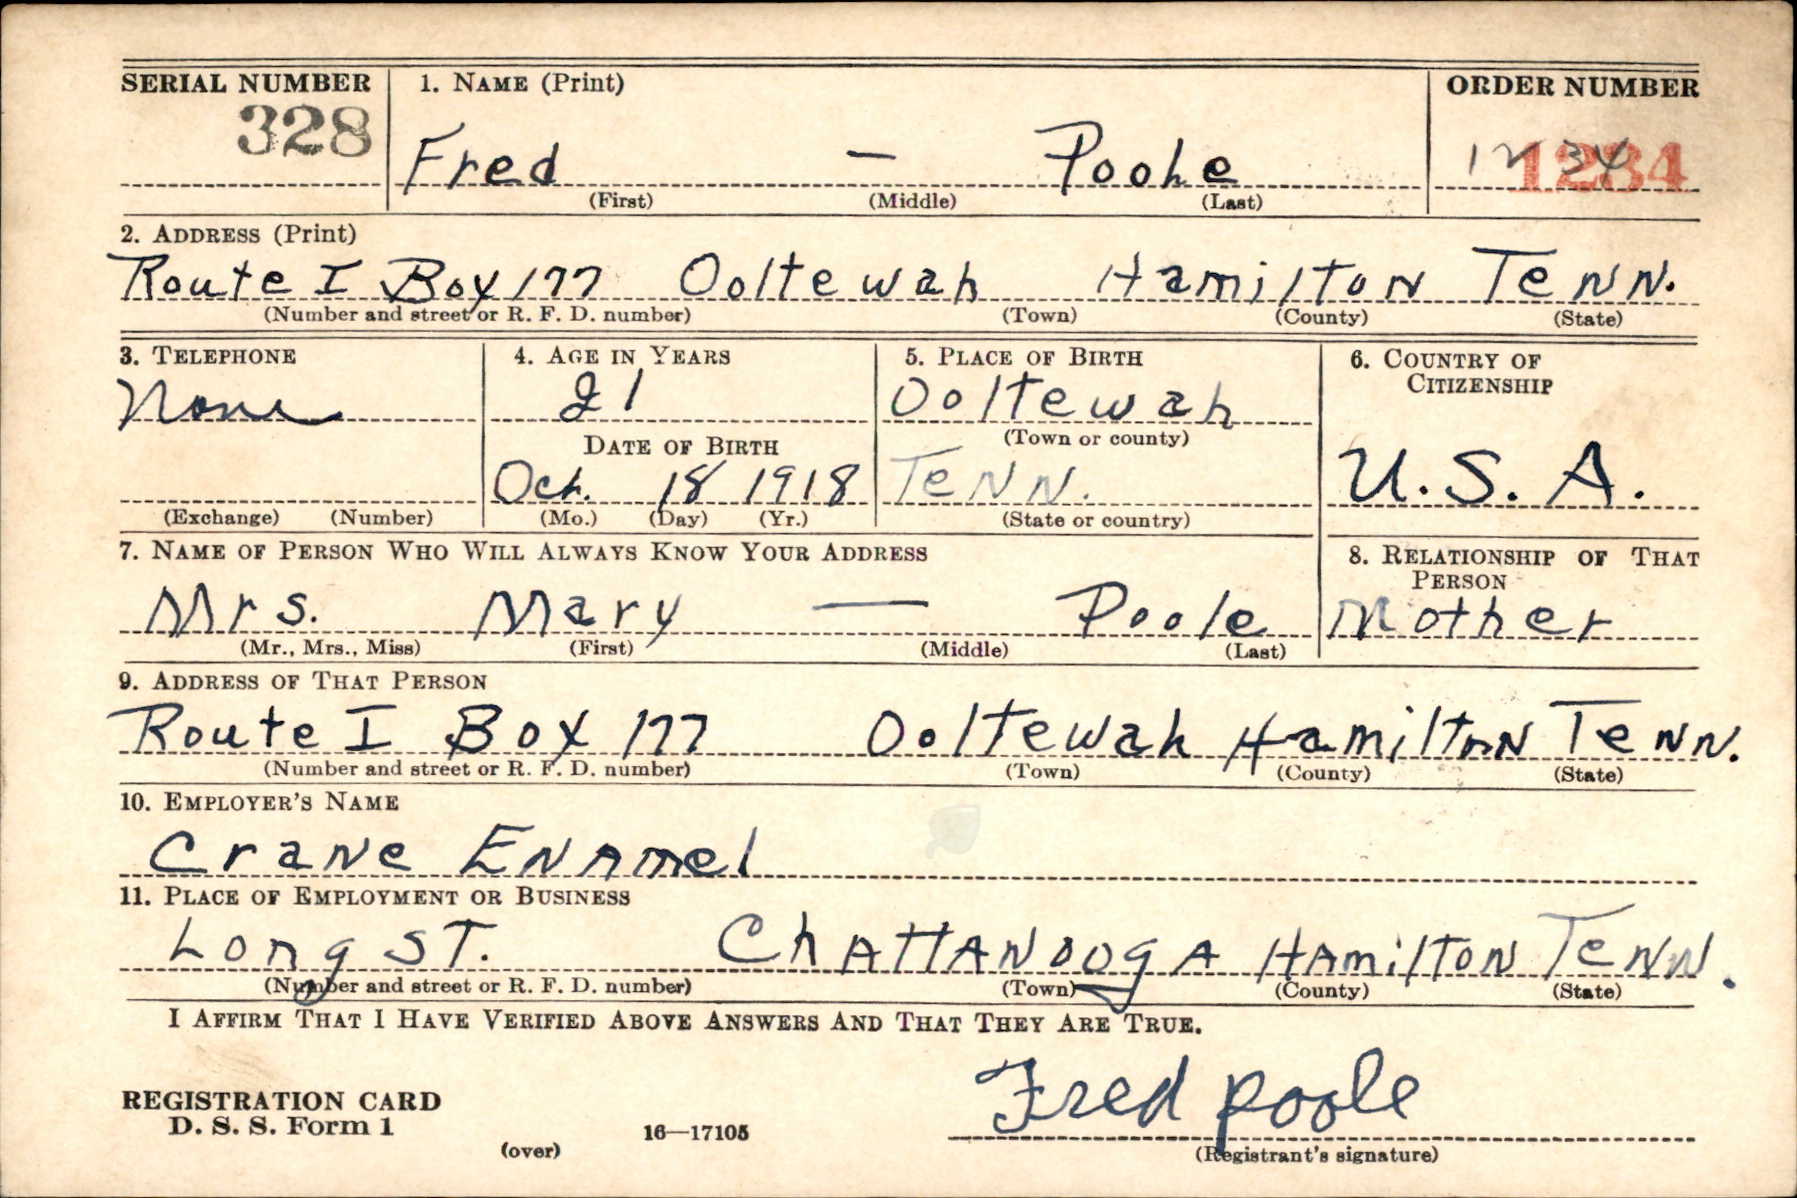 SERIAL NUMBER 1. NAME (Print) ORDER NUMBER
328 Fred — Poole 1234 1234
(First) (Middle) (Last)
2. ADDRESS (Print)
Route I Box 177 Ooltewah Hamilton Tenn.
(Number and street or R. F. D. number) (Town) (County) (State)
3. TELEPHONE 4. AGE IN YEARS 5. PLACE OF BIRTH 6. COUNTRY OF CITIZENSHIP
None 21 Ooltewah
(Town or county)
DATE OF BIRTH
Oct. 18 1918 Tenn. U.S.A.
(Exchange) (Number) (Mo.) (Day) (Yr.) (State or country)
7. NAME OF PERSON WHO WILL ALWAYS KNOW YOUR ADDRESS 8. RELATIONSHIP OF THAT PERSON
Mrs. Mary — Poole Mother
(Mr., Mrs., Miss) (First) (Middle) (Last)
9. ADDRESS OF THAT PERSON
Route I Box 177 Ooltewah Hamilton Tenn.
(Number and street or R. F. D. number) (Town) (County) (State)
10. EMPLOYER'S NAME
Crane Enamel
11. PLACE OF EMPLOYMENT OR BUSINESS
Long ST. Chattanooga Hamilton Tenn.
(Number and street or R. F. D. number) (Town) (County) (State)
I AFFIRM THAT I HAVE VERIFIED ABOVE ANSWERS AND THAT THEY ARE TRUE.
Fred Poole
REGISTRATION CARD
D. S. S. Form 1 16—17105
(over) (Registrant's signature)